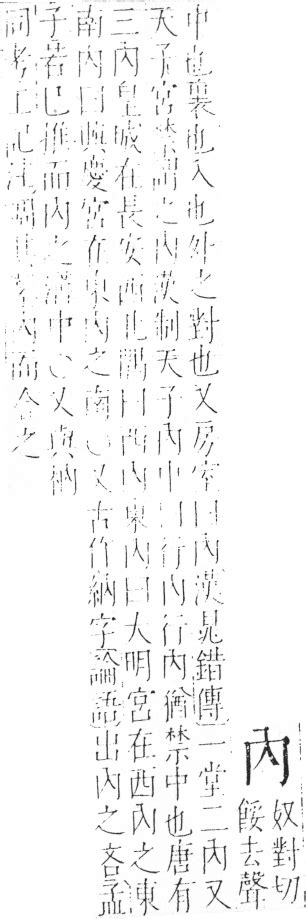 內
奴對切
餒去聲
中也裏也入也外之對也又房室曰內漢晁錯傳一堂二內又
天子宮禁謂之內漢制天子內中曰行內行內猶禁中也唐有
三內皇城在長安西北隅曰西內東內曰大明宮在西內之東
南內曰興慶宮在東內之南○又古作納字論語出內之吝孟
子若己推而內之溝中○又與枘
同考工記注調其鑿內而合之